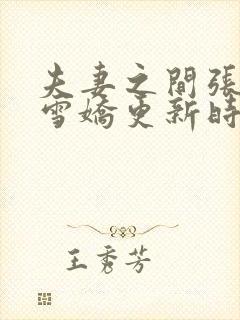 夫妻之間張
雪嬌更新時
王秀芳